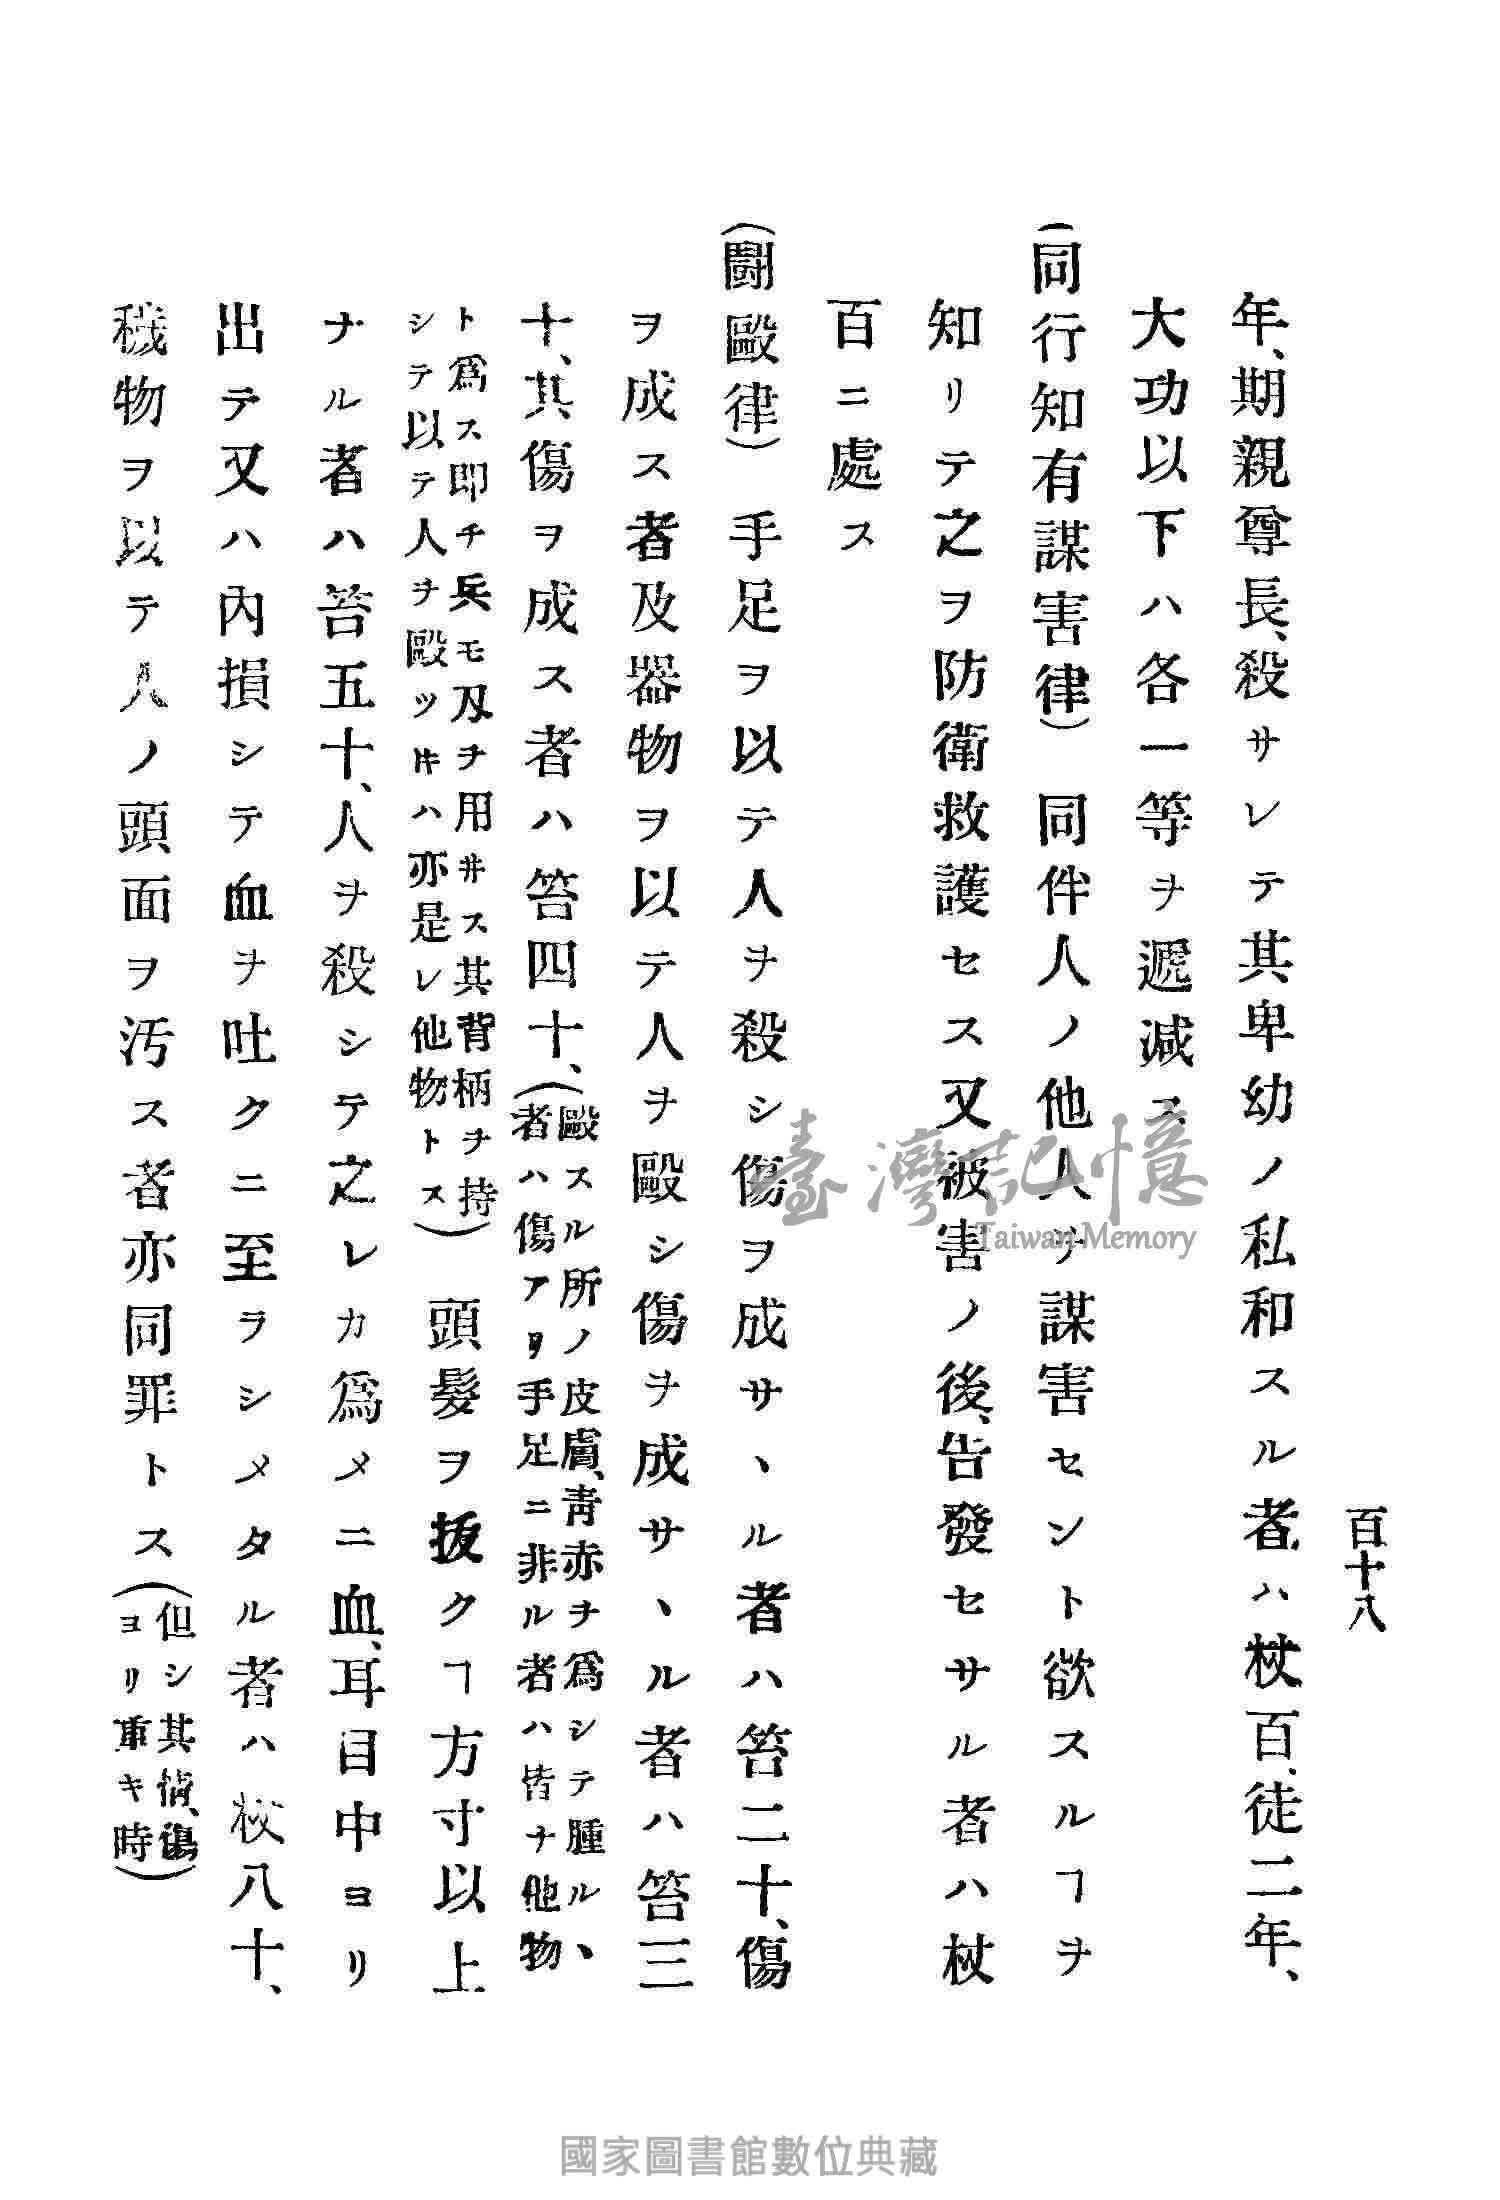 百十八
年、期親尊長、殺サレテ其卑幼ノ私和スル者ハ杖百、徒二年、
大功以下ハ各一等ヲ遞減ス
(同行知有謀害律) 同伴人ノ他人ヲ謀害セント欲スルヿヲ
知リテ之ヲ防衛救護セス又被害ノ後、告發セサル者ハ杖
百ニ處ス
(鬪毆律) 手足ヲ以テ人ヲ殺シ傷ヲ成サヽル者ハ笞二十、傷
ヲ成ス者及器物ヲ以テ人ヲ毆シ傷ヲ成サヽル者ハ笞三
十、其傷ヲ成ス者ハ笞四十、(毆スル所ノ皮膚、靑赤ヲ爲シテ腫ル、
者ハ傷アリ手足ニ非ル者ハ皆ナ他物
ト爲ス卽チ兵モ刄ヲ用井ス其背柄ヲ持
シテ以テ人ヲ毆ツ𪜈ハ亦是レ他物トス) 頭髮ヲ拔クヿ方寸以上
ナル者ハ笞五十、人ヲ殺シテ之レカ爲メニ血、耳目中ヨリ
出テ又ハ內損シテ血ヲ吐クニ至ラシメタル者ハ杖八十、
穢物ヲ以テ人ノ頭面ヲ汚ス者亦同罪トス(但シ其情、傷
ヨリ重キ時)
臺灣記憶
Taiwan Memory
國家圖書館數位典藏